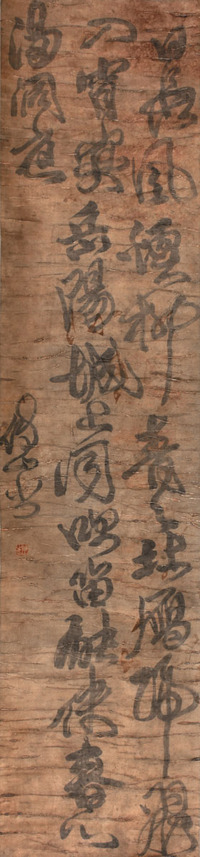 日長風暖柳青〻北雁歸飛
入窅冥岳陽城上聞吹笛能使春心
滿洞庭
傅山書